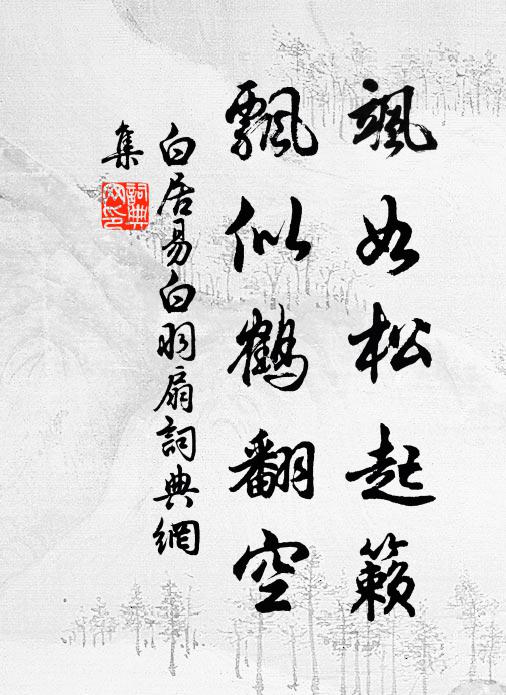 颯如松起籟
飄似鶴翻空
白居易白羽扇詞典網
集
詞典
网印